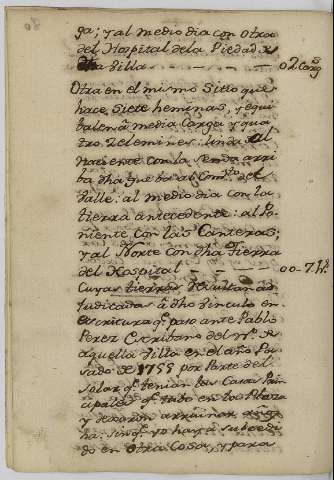 ga; y al medio dia con otra
del Hospital de la Piedad de
dha Villa - - - - 02 Cargs
Otra en el mismo Sitio que
hace Siete heminas, y equi
balen â media Carga y qua
tro Zelemines: linda al
naciente con la senda arri
ba dha que ba al de el
Valle: al medio dia con la
tierra antecedente: al Po-
niente con las Canteras;
y al Norte con dha Tierra
del Hospital - - - - 00-7 Hs
Cuyas tierras
judicadas â dho Vinculo en
escritura q.e paso ante Pablo
Perez Escribano del N.o de
aquella Villa en el año Pa-
sado de 1755 por Parte del
Solar q.e tenian las Casas Prin
cipales q.e hubo en la Plaza
y dexaron arruinar
ha: sin q.e yo haya subcedi
do en otra Cosa, y para